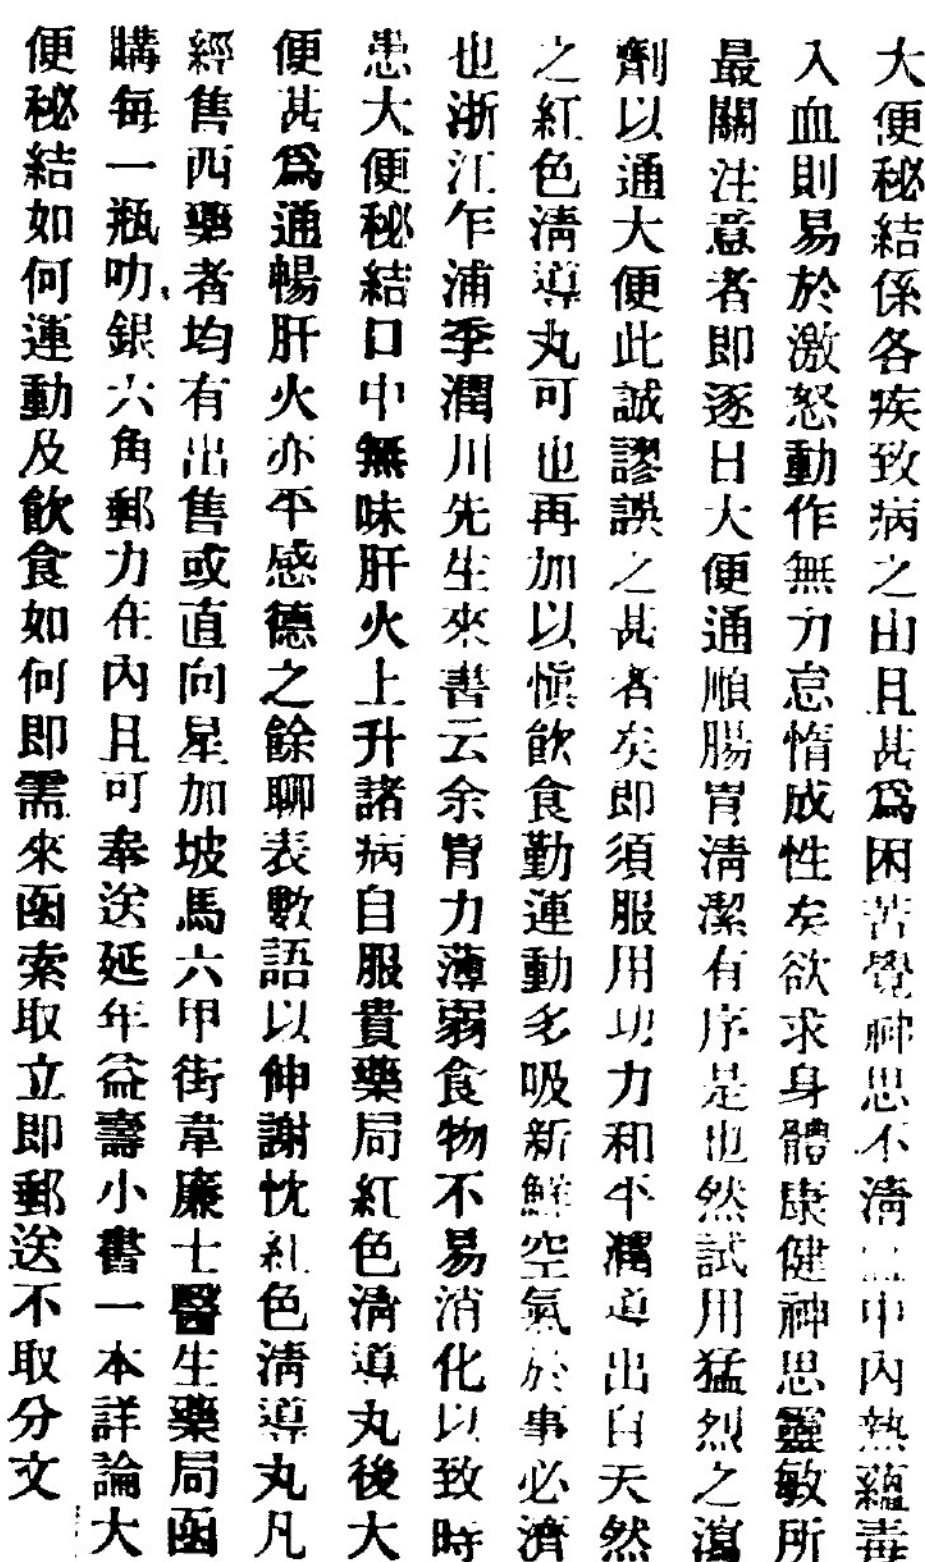 大便秘結係各疾致病之由且甚爲困苦覺神思不淸血中內熱蘊毒
入血則易於激怒動作無力怠惰成性矣欲求身體康健神思靈敏所
最關注意者即逐日大便通順腸胃淸潔有序是也然試用猛烈之瀉
劑以通大便此誠謬誤之甚者矣即須服用功力和平濶道出自天然
之紅色淸導丸可也再加以愼飮食勤運動多吸新鮮空氣於事必濟
也浙江乍浦季潤川先生來書云余胃力薄弱食物不易消化以致時
患大便秘結口中無味肝火上升諸病自服貴藥局紅色淸導丸後大
便甚爲通暢肝火亦平感德之餘聊表數語以伸謝忱紅色淸導丸凡
經售西藥者均有出售或直向星加坡馬六甲街韋廉士醫生藥局函
購每一瓶叻銀六角郵力在內且可奉送延年益壽小書一本詳論大
便秘結如何運動及飮食如何即需來函索取立即郵送不取分文